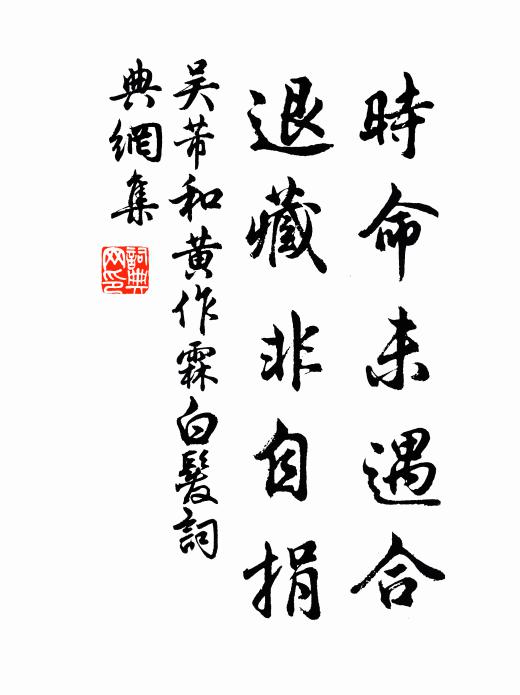 時命未遇合
退藏非自捐
吴芾和黄作霖白髮詞
典網集
詞典
网印